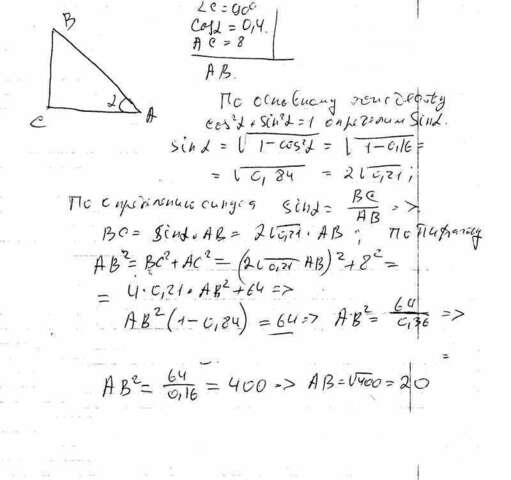 B
C
2
A
∠C=90°
Cosα=0,4.
AC=8
AB.
По основному тождеству
cos²α+sin²α=1 определим sinα.
sinα=√(1-cos²α)=√(1-0,16)=
=√0,84=2√0,21;
По определению синуса sinα=BC/AB=>
BC=sinα·AB=2√0,21·AB; по Пифагору
AB²=BC²+AC²=(2√0,21 AB)²+8²=
=4·0,21·AB²+64=>
AB²(1-0,84)=64=> AB²=64/0,36=>
=
AB²=64/0,16=400=> AB=√400=20